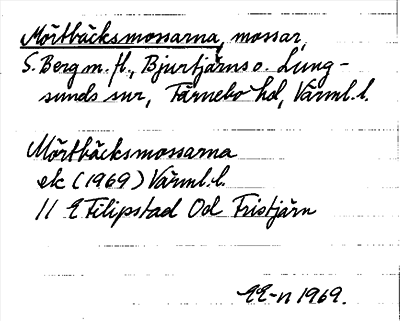 Mörtbäcksmossarna, mossar,
S. Berg m. fl., Bjurtjärns o. Lung-
sunds snr, Färnebo hd, Värml. l.
Mörtbäcksmossarna
ek (1969) Värml. l.
11 E Filipstad 0d Fristjärn
EE-n 1969.